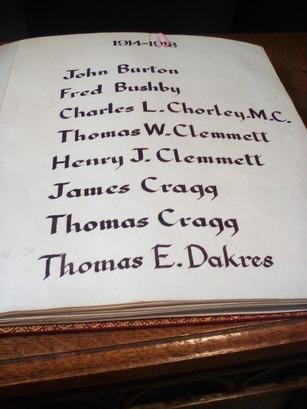 1914-1918
John Burton
Fred Bushby
Charles L. Chorley. M.C.
Thomas W. Clemmett
Henry J. Clemmett
James Cragg
Thomas Cragg
Thomas E. Dakres